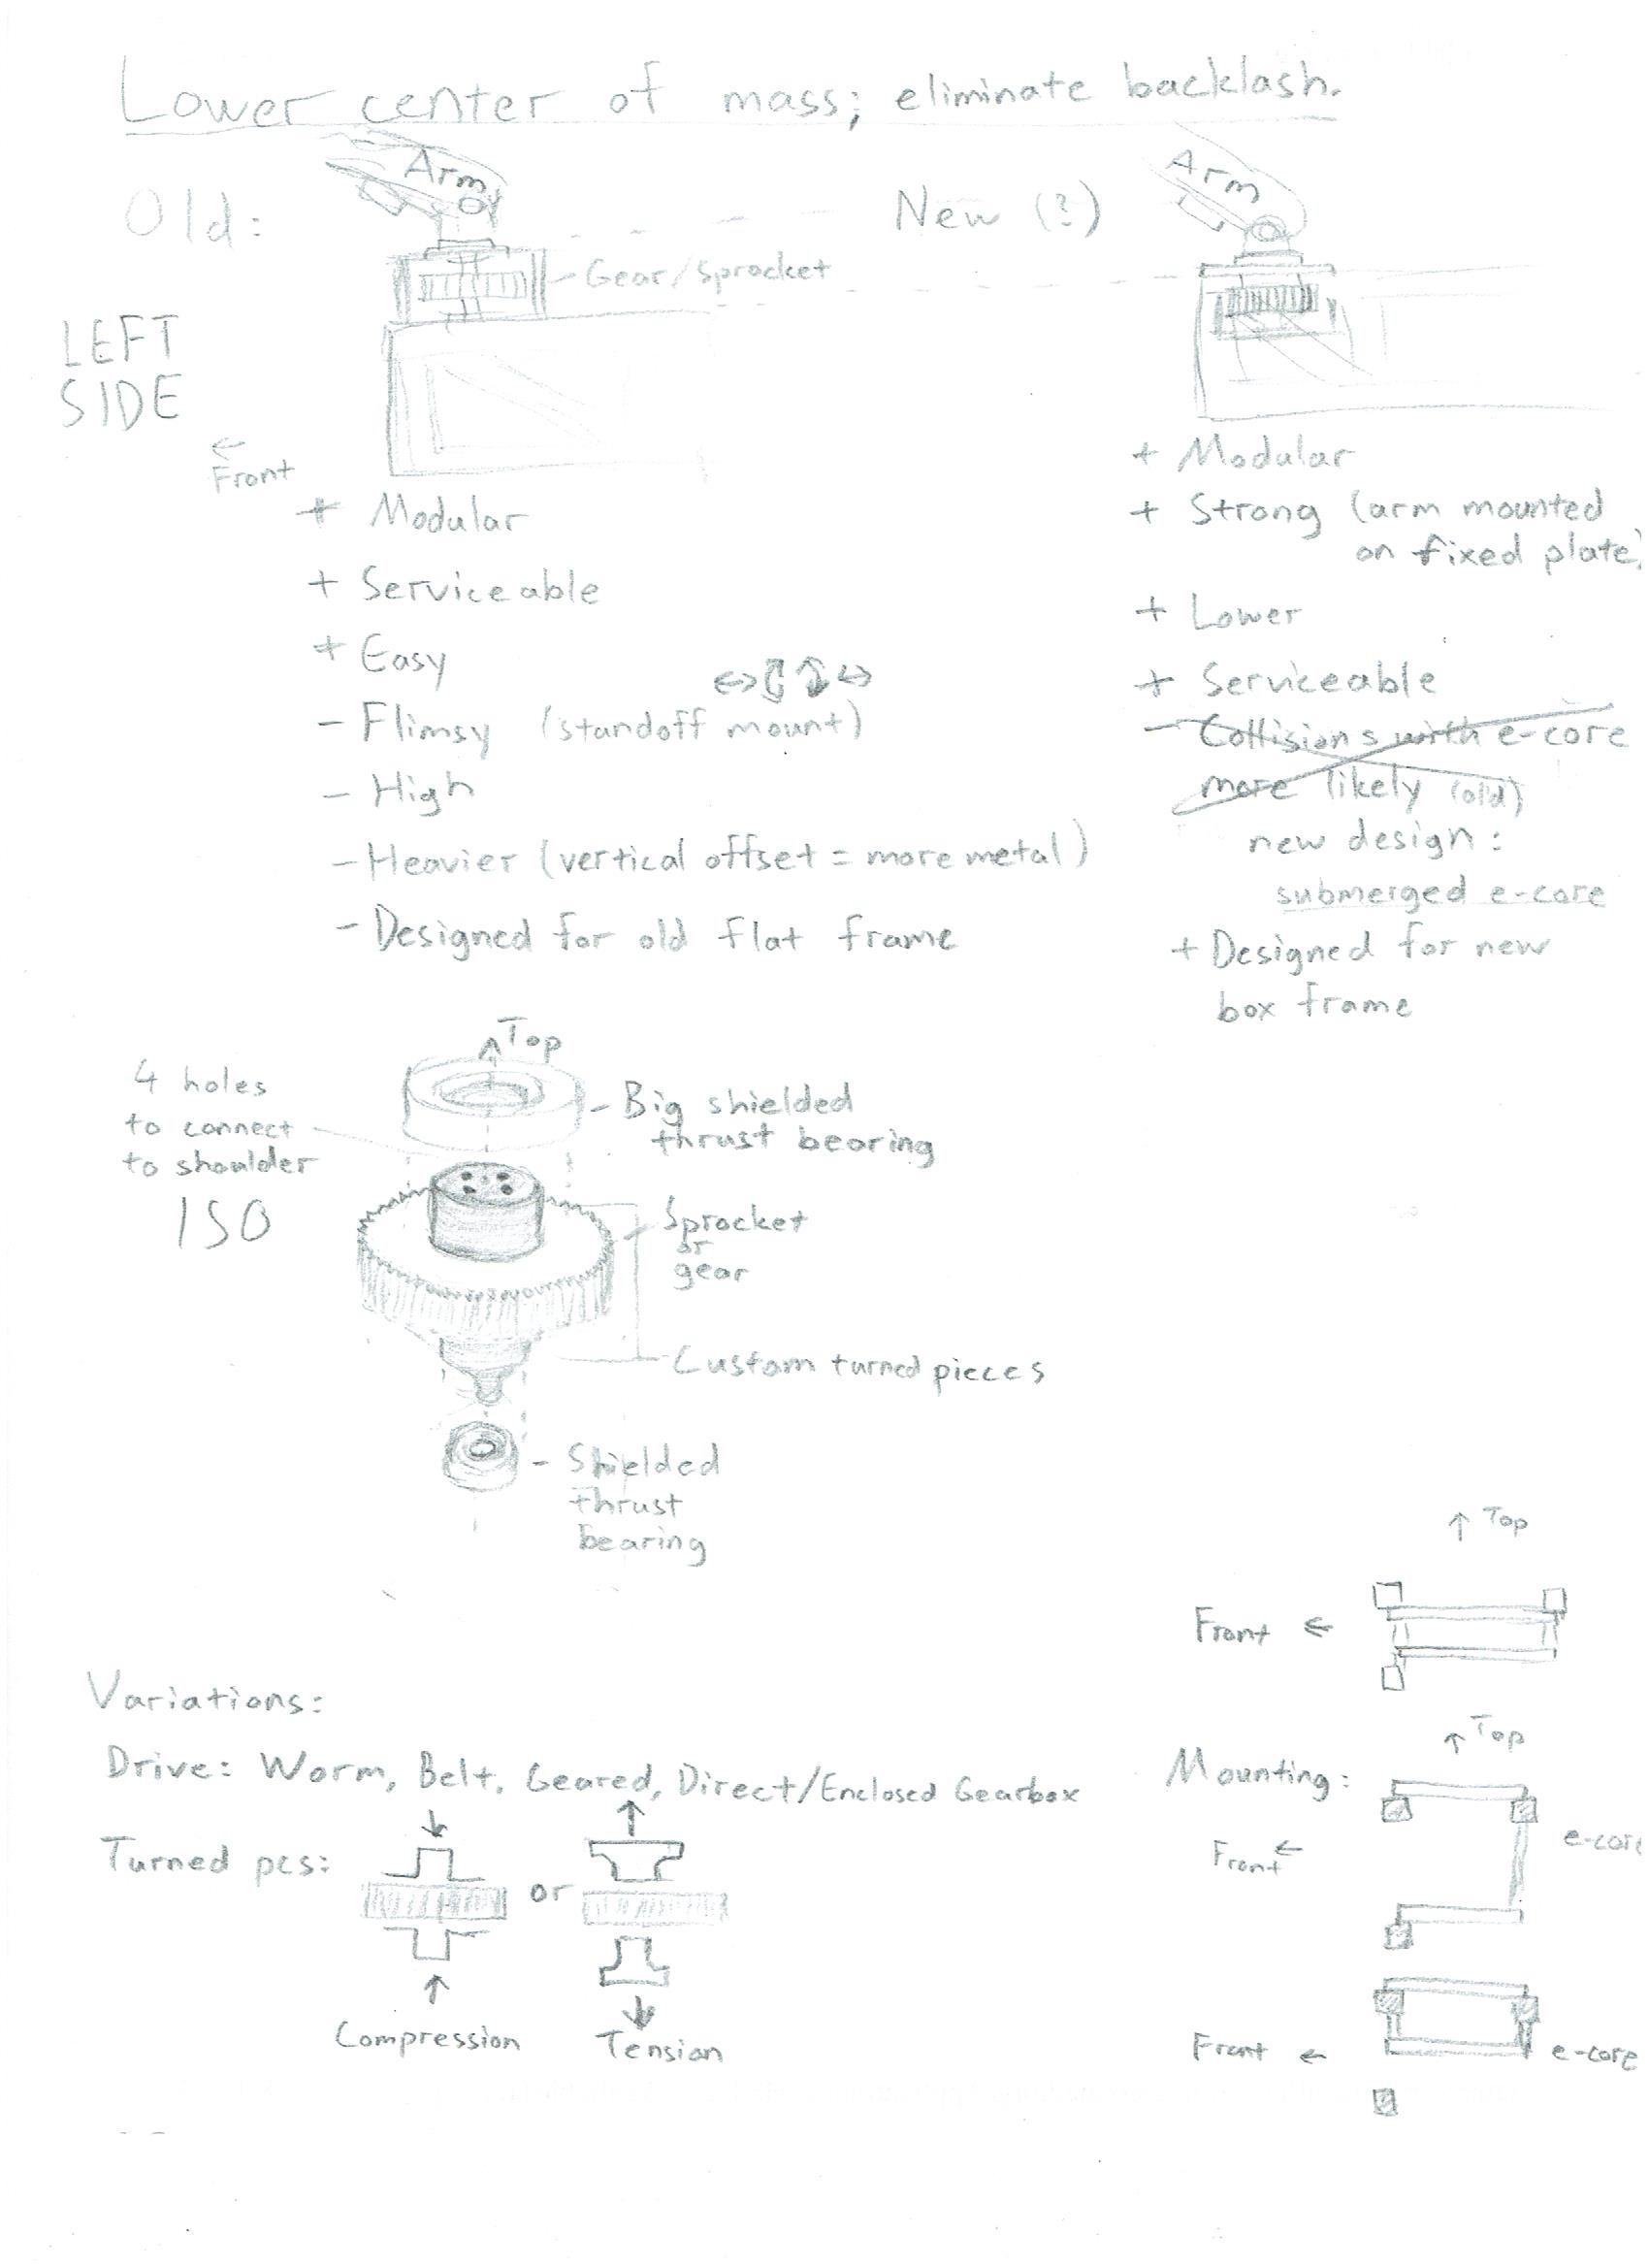 Lower center of mass; eliminate backlash.
Old:
Arm
Gear/Sprocket
New (?)
Arm
LEFT
SIDE
← Front
+ Modular
+ Serviceable
+ Easy
- Flimsy (standoff mount)
- High
- Heavier (vertical offset = more metal)
- Designed for old flat frame
+ Modular
+ Strong (arm mounted
on fixed plate)
+ Lower
+ Serviceable
- Collisions with e-core
more likely (old)
new design:
submerged e-core
+ Designed for new
box frame
Top
4 holes
to connect
to shoulder
ISO
- Big shielded
thrust bearing
Sprocket
or
gear
Custom turned pieces
- Shielded
thrust
bearing
↑ Top
Front ←
Variations:
Drive: Worm, Belt, Geared, Direct/Enclosed Gearbox
Turned pcs:
or
Compression
Tension
↑ Top
Mounting:
Front ←
e-core
Front ←
e-core